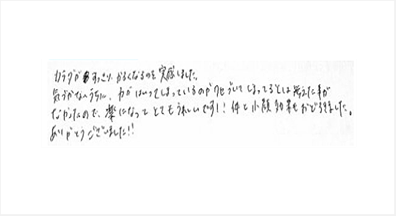 カラダがすっきり、かるくなるのを実感しました。
気づかないうちに、力がはいってしまっているのがクセになってしまってるとは考えた事が
なかったので、楽になって とてもうれしいです!!体と小顔効果もおどろきました。
ありがとうございました!!